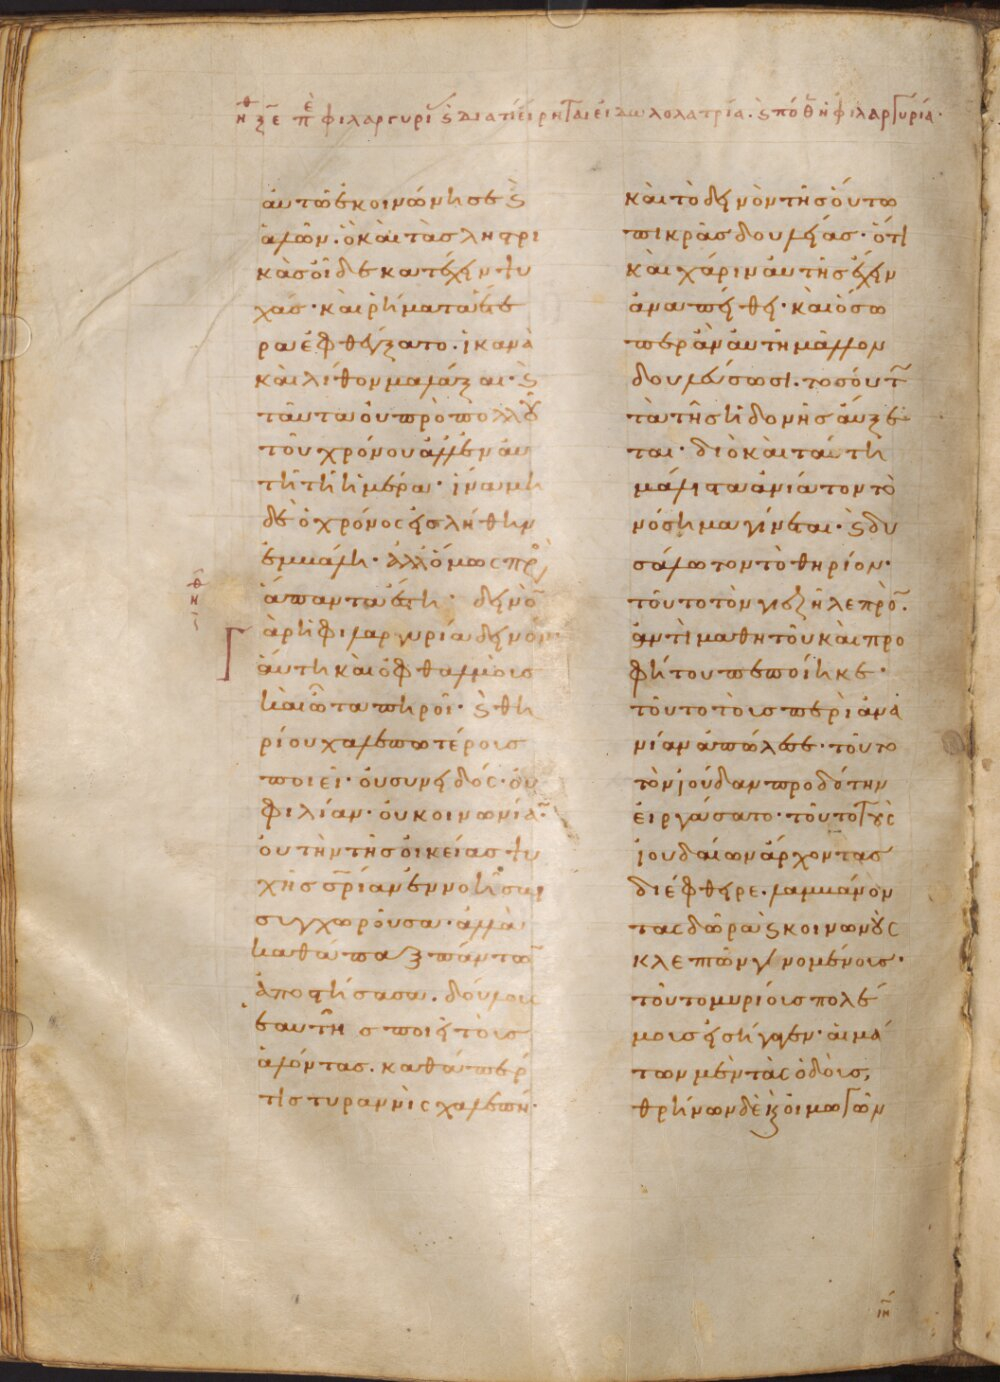 φιλαργυρί ϛ διατί εἴρηται εἰδωλολατρία. ϛ πόθ ἡ φιλαργυρία.
αὐτῶ ἐκοινώνησε ϛ
ἁλῶν. ὁ καὶ τὰς λῃτρι
κὰς οἶδε κατέχειν ψυ
χάς· καὶ ῥήματα ἕτε
ρα ἐφθέγξατο. ἱκανὰ
καὶ λίθον μαλάξαι. ϛ
ταῦτα οὐ πρὸ πολλοῦ
τοῦ χρόνου ἀλλ' ἐν αὐ
τῆ τῆ ἡμέρα· ἵνα μὴ
δὲ ὁ χρόνος εἰς λήθην
ἐμβάλη. ἀλλ' ὅμως πρὸς
ἅπαντα ἔστη· δεινὸν
ἄρ' ἡ φιλαργυρία δεινόν·
αὕτη καὶ ὀφθαλμοὺς
καὶ ὦτα πηροῖ· ϛ θη
ρίου χαλεπωτέρους
ποιεῖ· οὐ συνειδός· οὐ
φιλίαν· οὐ κοινωνίαν·
οὐ τὴν τῆς οἰκείας ψυ
χῆς σρίαν ἐννοῆσαι
συγχωροῦσα· ἀλλὰ
καθάπαξ πάντων
ἀποστήσασα. δούλους
ἑαυτῆς ποιεῖ τοὺς
ἁλόντας. καθάπερ
τὶς τυραννὶς χαλεπή·
καὶ τὸ δεινὸν τῆς οὕτω
πικρᾶς δουλείας· ὅτι
καὶ χάριν αὐτῆς ἔχειν
ἀναπείθει· καὶ ὅσω
περ ἂν αὐτῆ μᾶλλον
δουλεύσωσι. τοσούτ
τὰ τῆς ἡδονῆς αὔξε
ται· διὸ καὶ ταύτη
μάλιστα ἀνίατον τὸ
νόσημα γίνεται. ϛ δυ
σάλωτον τὸ θηρίον·
τοῦτο τὸν γιεζῆ λεπρὸν.
ἀντὶ μαθητοῦ καὶ προ
φήτου πεποίηκε·
τοῦτο τοὺς περὶ ἀνα
νίαν ἀπώλεσε· τοῦτο
τὸν ἰούδαν προδότην
εἰργάσατο· τοῦτο τοὺς
ἰουδαίων ἄρχοντας
διέφθειρε. λαμβάνον
τας δῶρα ϛ κοινωνοὺς
κλεπτῶν γινομένους·
τοῦτο μυρίους πολέ
μους εἰσήγαγεν· αἱμά
των μὲν τὰς ὁδοὺς,
θρήνων δὲ κ οἰμωγῶν